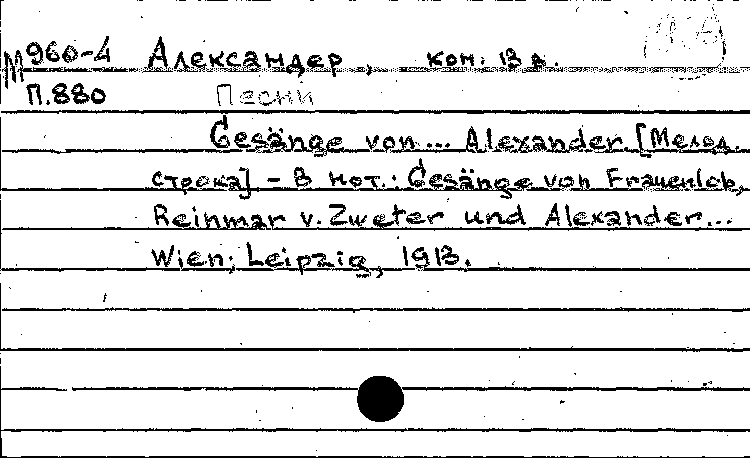 М 960-4 Александер, кон. 13 в.
П.880 Песни
Gesänge von... Alexander. [Мелод.
строка] - В нот.: Gesänge von Frauenlob,
Reinmar v. Zweter und Alexander...
Wien; Leipzig, 1913.